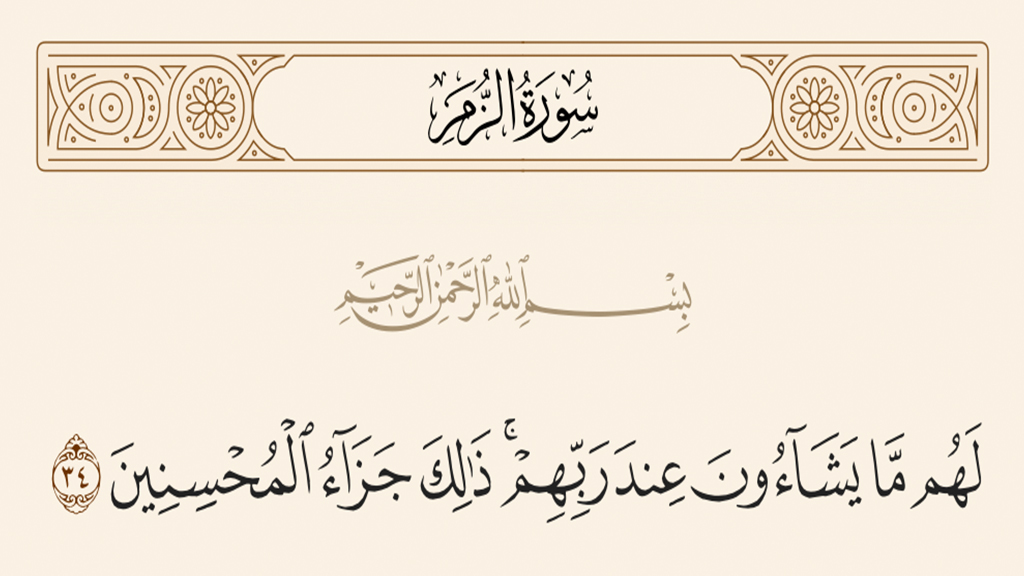 سُورَةُ الزُّمَرِ
بِسْمِ ٱللَّهِ ٱلرَّحْمَٰنِ ٱلرَّحِيمِ
لَهُم مَّا يَشَآءُونَ عِندَ رَبِّهِمْ ۚ ذَٰلِكَ جَزَآءُ ٱلْمُحْسِنِينَ ٣٤